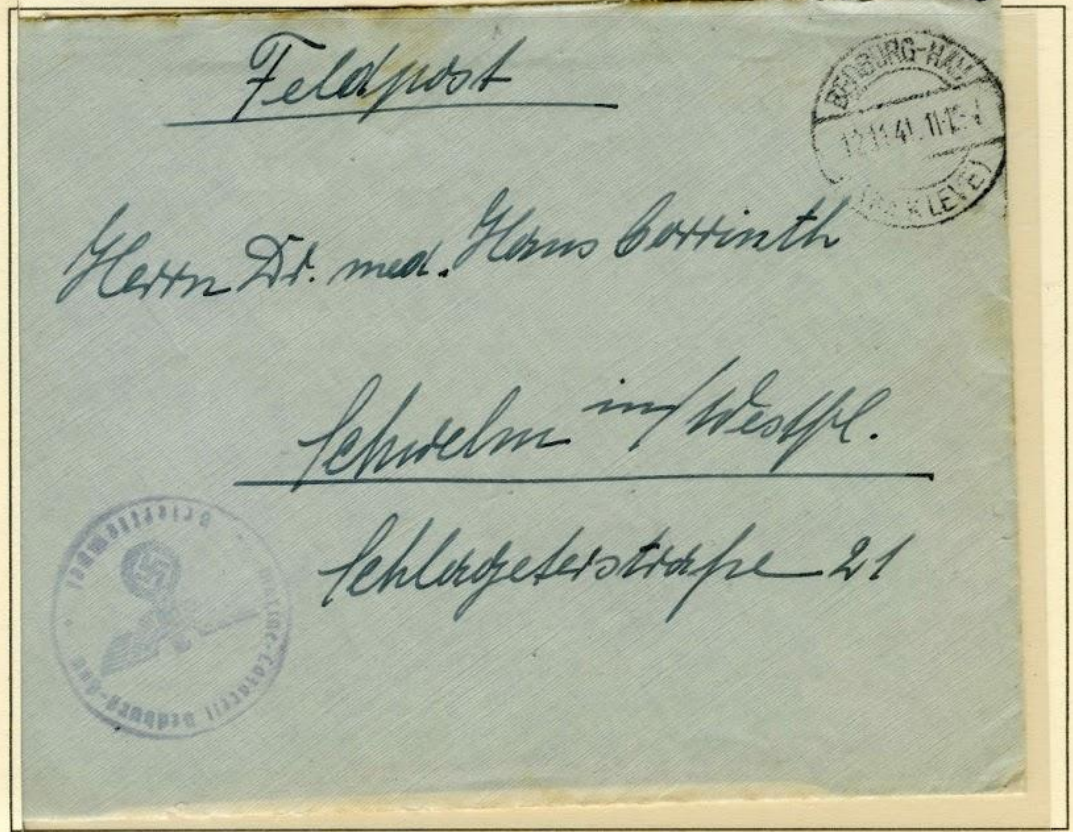 Feldpost
BEDBURG-HAU
12.11.41. 11-12
KLEVE)
Herrn Dr. med. Hans Corrinth
Schwelm in/Westfl.
Schlageterstraße 21
Briefstempel
Marine-Lazarett Bedburg-Hau